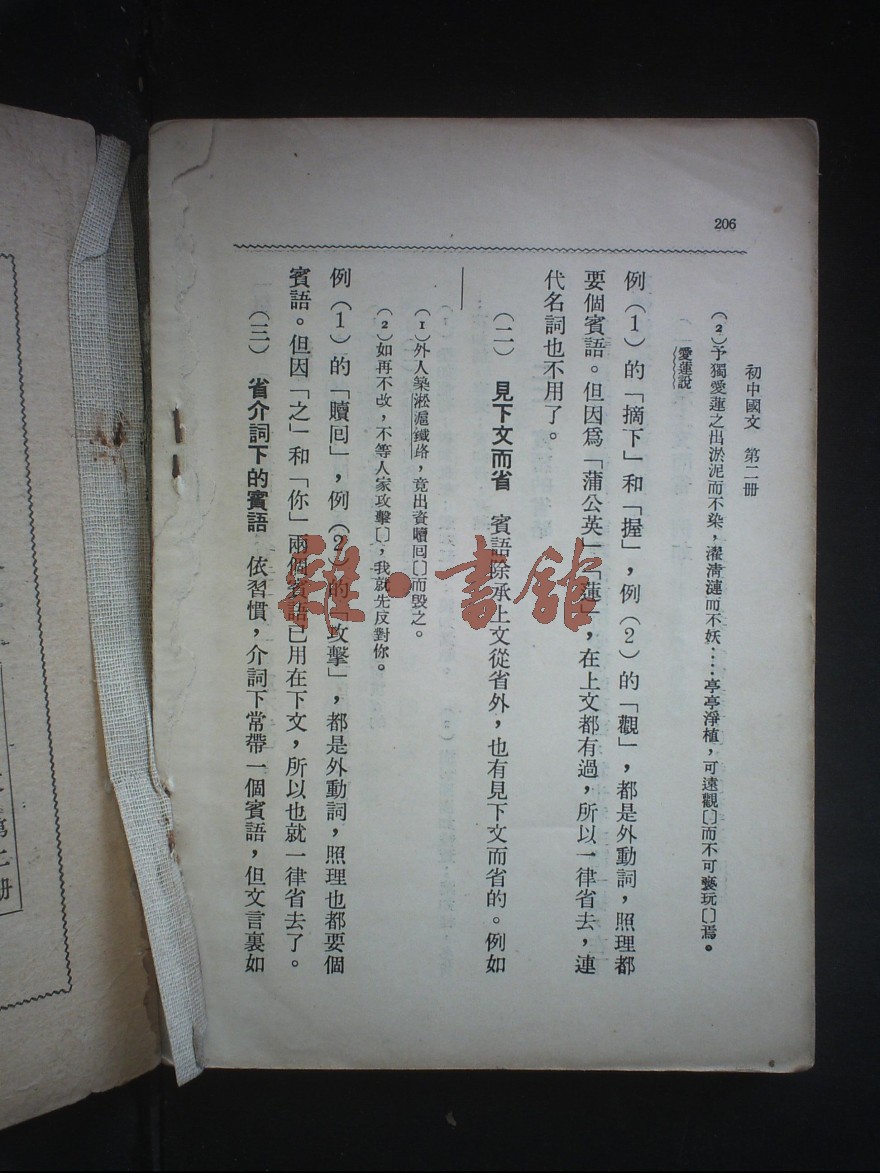 206
初中國文　第二册
（2）予獨愛蓮之出淤泥而不染，濯清漣而不妖……亭亭淨植，可遠觀〔〕而不可褻玩〔〕焉。
（愛蓮說
例（1）的「摘下」和「握」，例（2）的「觀」，都是外動詞，照理都
要個賓語。但因爲「蒲公英」「蓮」，在上文都有過，所以一律省去，連
代名詞也不用了。
（二）　見下文而省　賓語除承上文從省外，也有見下文而省的。例如
（1）外人築淞滬鐵路，竟出資贖回〔〕而毀之。
（2）如再不改，不等人家攻擊〔〕，我就先反對你。
例（1）的「贖回」，例（2）的「攻擊」，都是外動詞，照理也都要個
賓語。但因「之」和「你」兩個賓語已用在下文，所以也就一律省去了。
（三）　省介詞下的賓語　依習慣，介詞下常帶一個賓語，但文言裏如
雜·書館
第二册